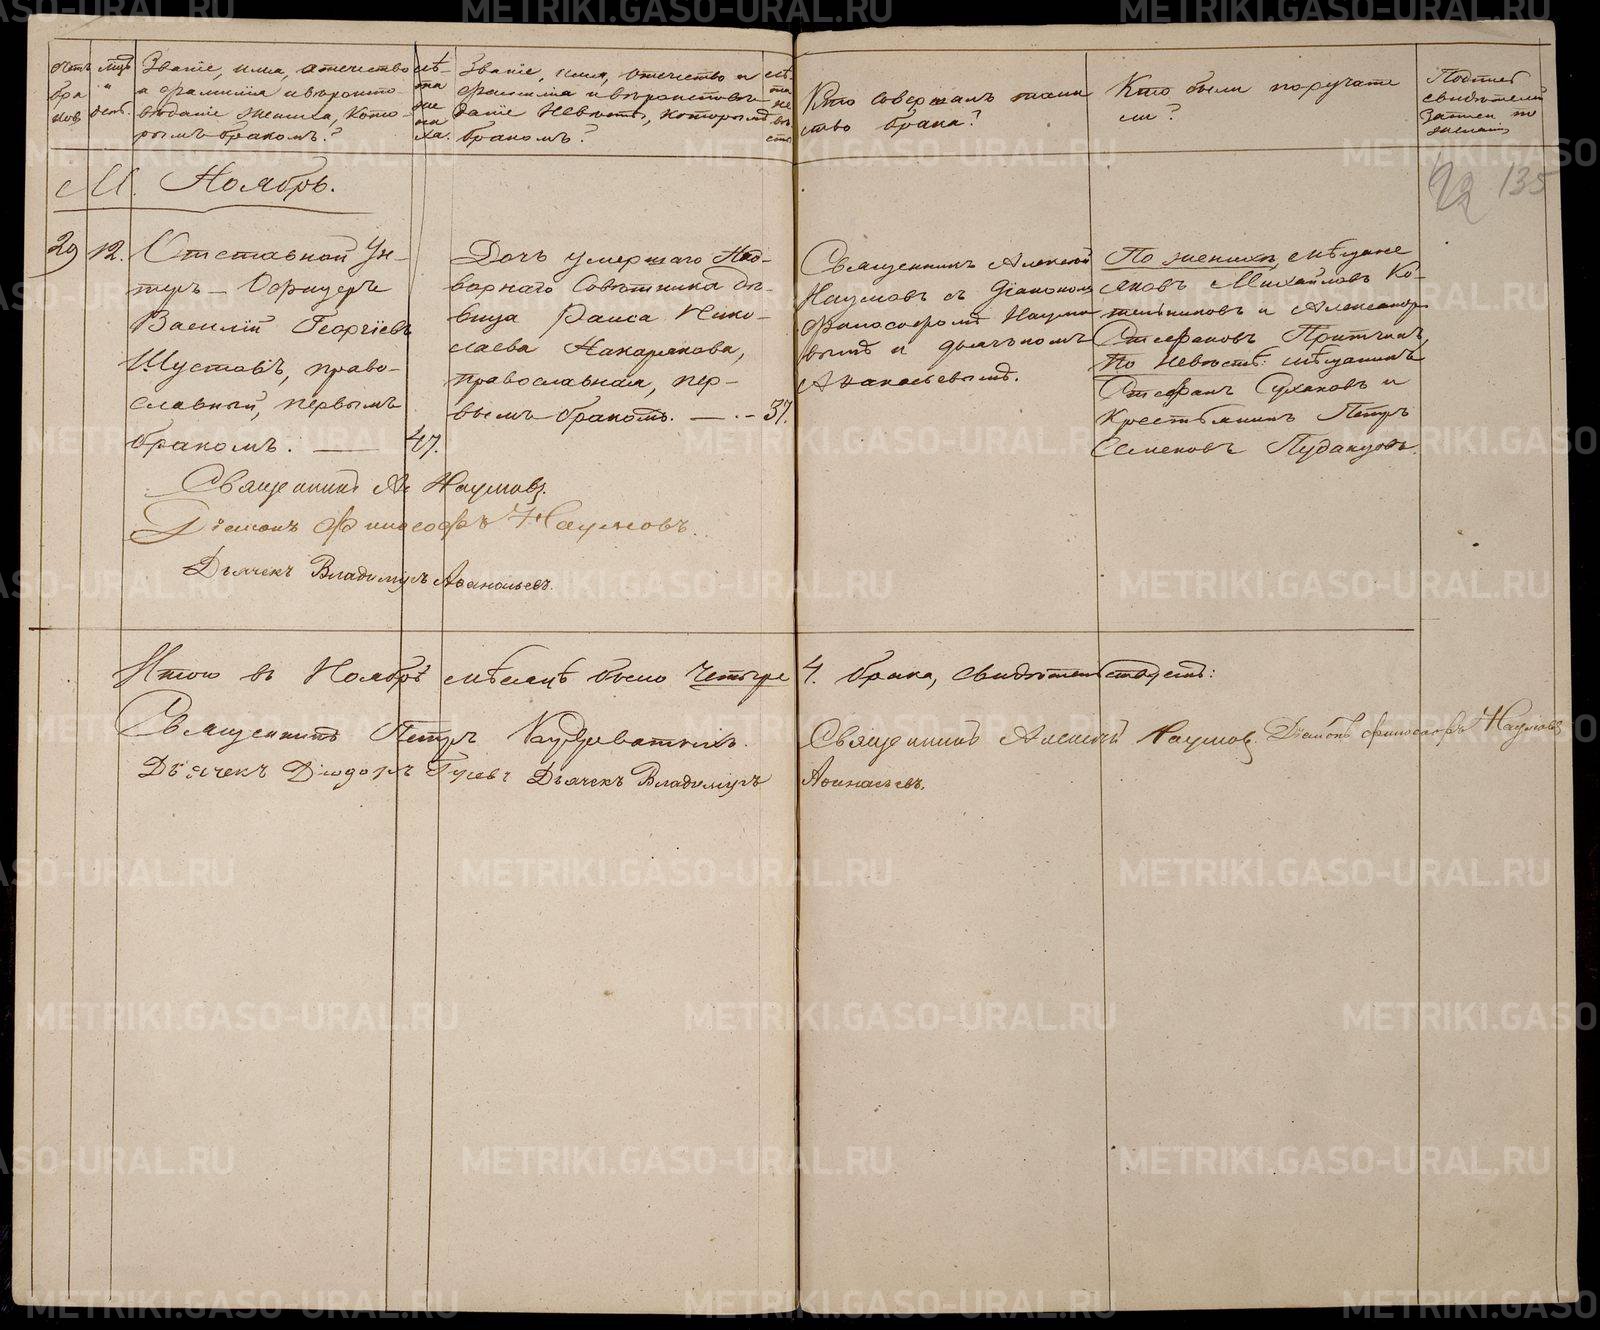 Счетъ бра ков.
Мцъ и день.
Званіе, имя, отечество
и фамилія и вѣроиспо-
вѣданіе жениха, кото-
рымъ бракомъ?
лѣ-
та
же
ни
ха.
Званіе, имя, отечество и
фамилія и вѣроисповѣ-
даніе невѣсты, которымъ
бракомъ?
лѣ-
та
не
вѣ
сты
Кто совершалъ таин
ство брака?
Кто были поручите
ли?
Подпись
свидѣтелей
записи по
желанію
М. Ноябрь.
135
29 12. Отставной Ун-
теръ-Офицеръ
Василій Георгіевъ
Шустовъ, право-
славный, первымъ
бракомъ. — 47.
Дочь умершаго Над-
ворнаго Совѣтника дѣ-
вица Раиса Нико-
лаева
православная, пер-
вымъ бракомъ. — . – 37.
Священникъ Алексей
Наумовъ съ Діакономъ
Философомъ Наумо
вымъ и дьячкомъ
Афанасьевымъ.
По женихѣ, мѣщане
Яковъ Михайловъ Ко-
тельниковъ и Александръ
Стефановъ Притчинъ,
По невѣстѣ: мѣщанинъ
Стефанъ Сухановъ и
Крестьянинъ Петръ
Семеновъ
Священникъ Ал. Наумовъ.
Діаконъ Философъ Наумовъ.
Дьячекъ Владиміръ Афанасьевъ.
Итого въ Ноябрѣ мѣсяцѣ было четыре 4. брака, свидѣтельствуетъ:
Священникъ Петръ Священникъ Алексѣй Наумовъ. Діаконъ Философъ Наумовъ
Дьячекъ Діодоръ Гусевъ Дьячекъ Владиміръ Афанасьевъ.
METRIKI.GASO-URAL.RU